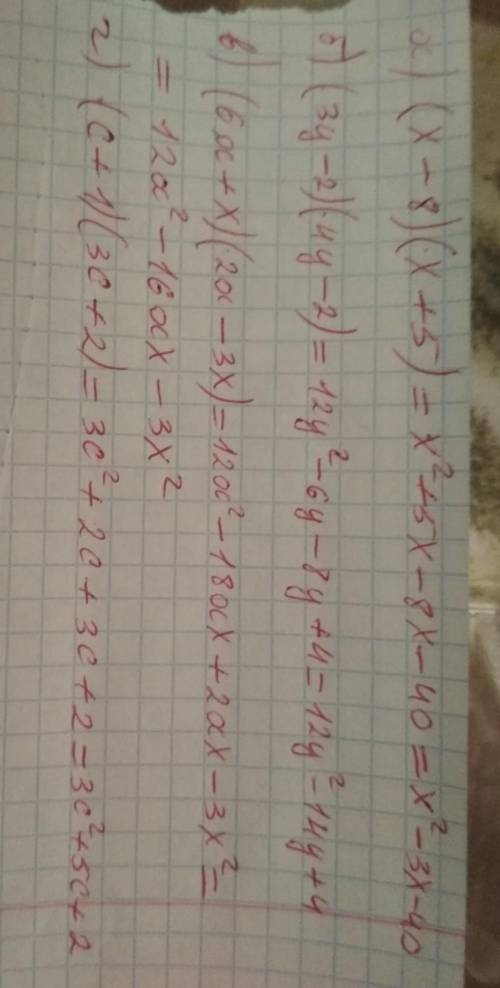 а) (x-8)(x+5)=x²+5x-8x-40=x²-3x-40
б) (3y-2)(4y-2)=12y²-6y-8y+4=12y²-14y+4
в) (6a+x)(2a-3x)=12a²-18ax+2ax-3x²=
=12a²-16ax-3x²
г) (c+1)(3c+2)=3c²+2c+3c+2=3c²+5c+2